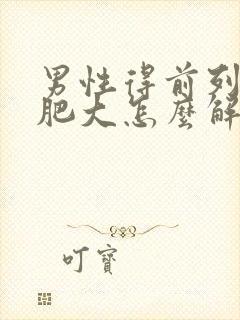 男性得前列
肥大怎麼解
叮寶